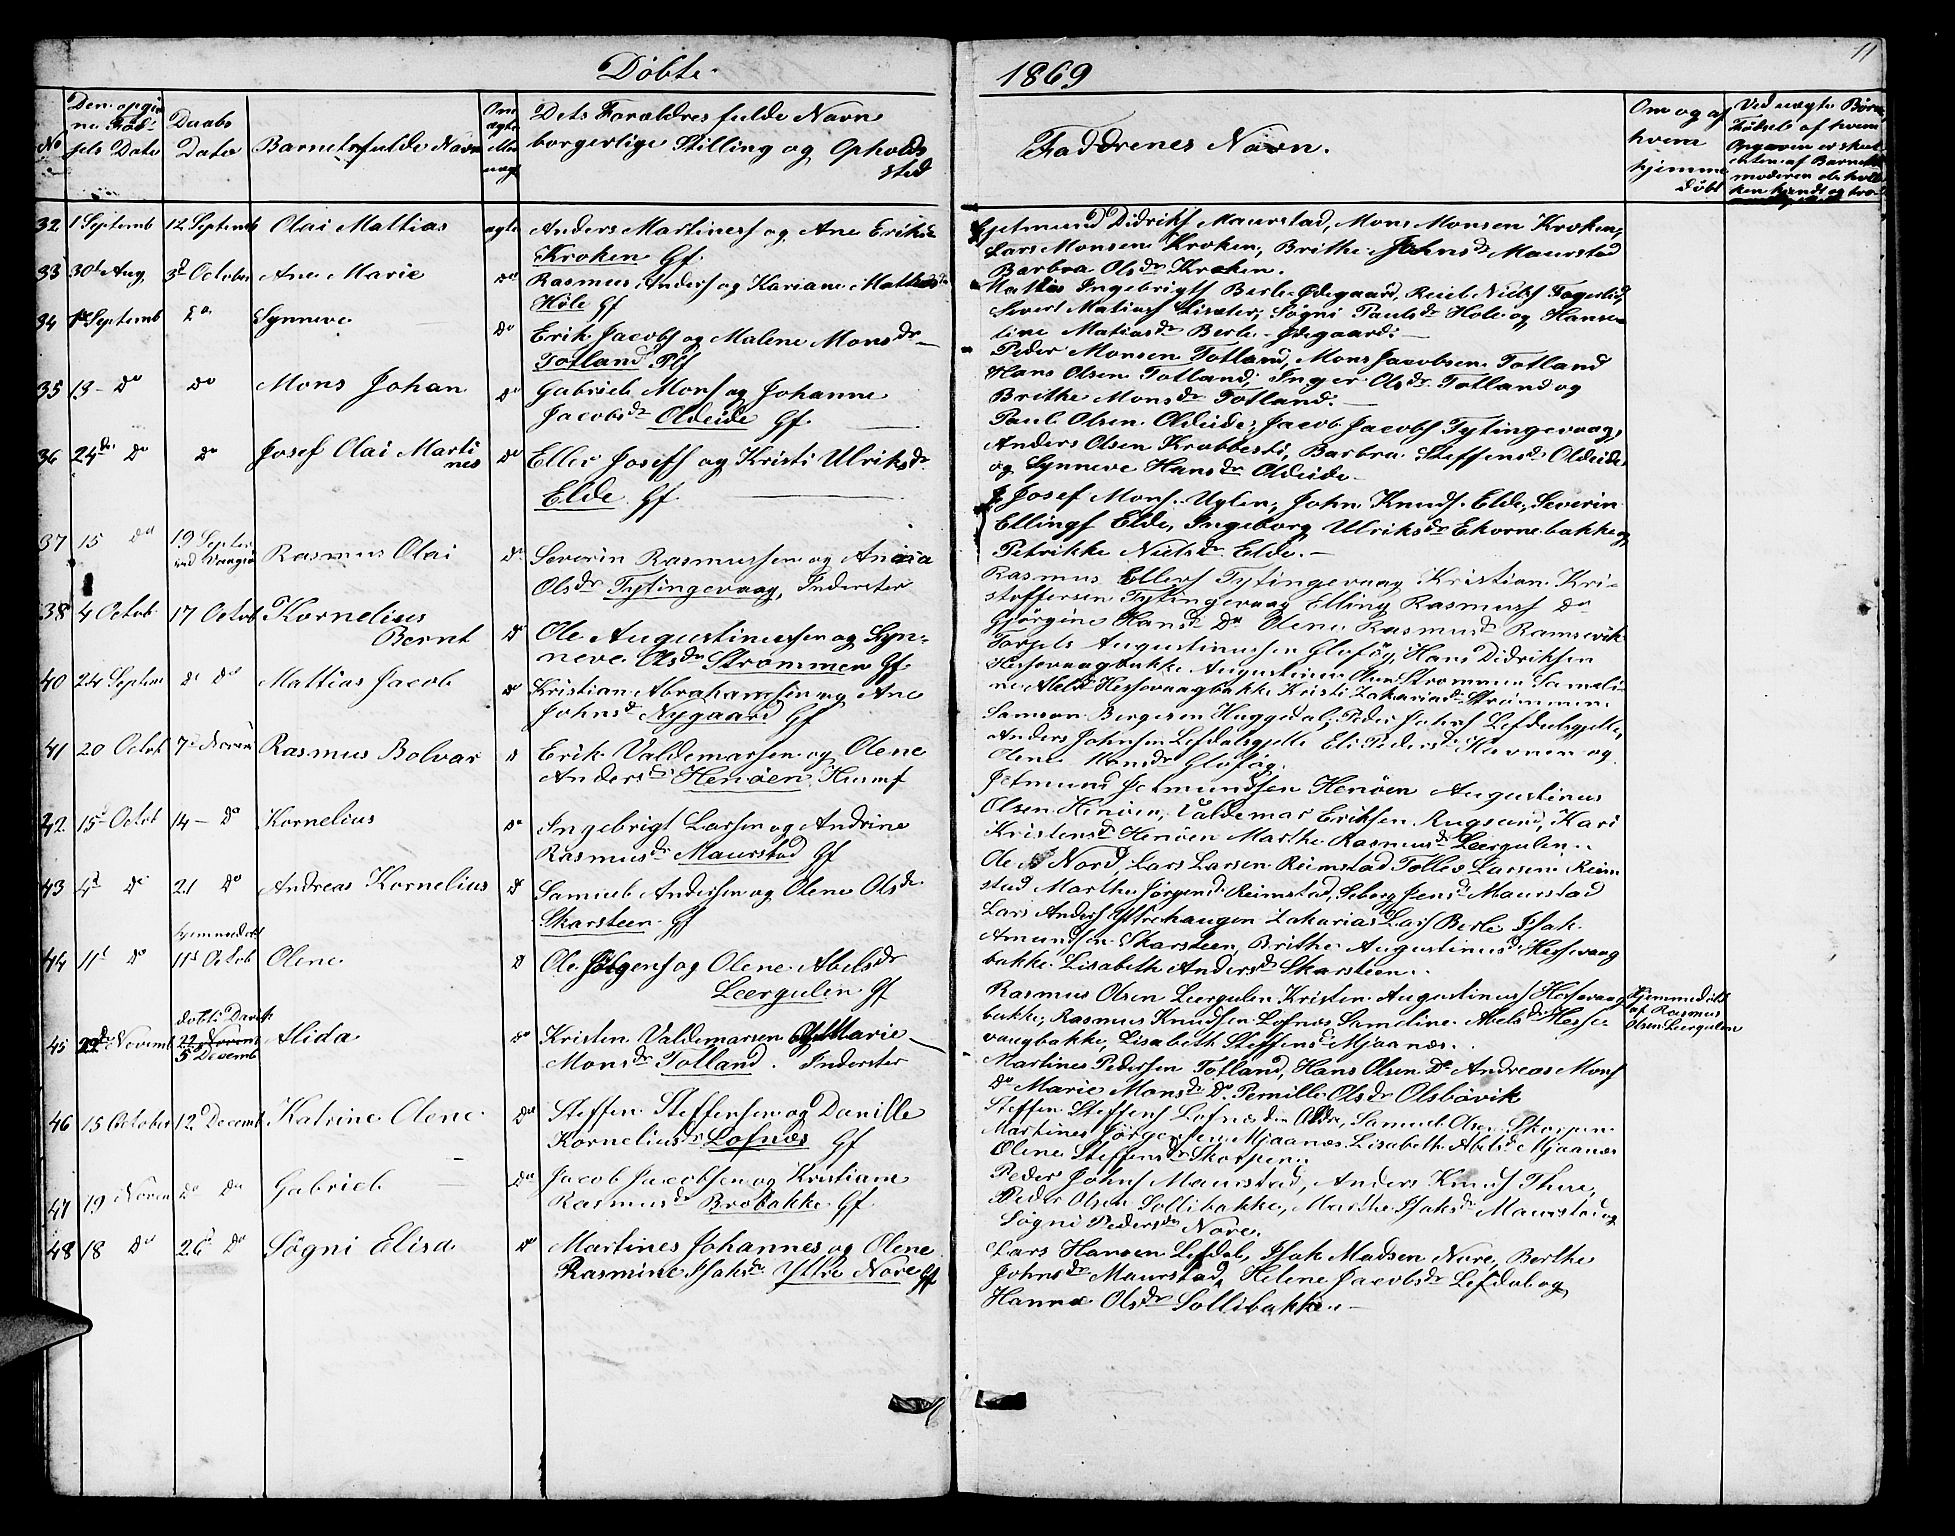 Döbte.
1869
11
No
Den opgiv
ne Föd-
sels Dato
Daabs
Dato
Barnets fulde Navn
Om
ægte
eller
uægt
Dets Forældres fulde Navn
borgerlige Stilling og Opholds
sted
Faddrenes Navn.
Om og af
hvem
hjemme
döbt
Ved uægte Börns
Födsel af hvem
Opgaven er skeet
enten af Barnets
moderen
32 1 Septemb 12 Septemb Olai Mattias ægte Anders Martiness og Ane Eriks
Kroken Gf.
Hjelmund Didriks Maurstad, Mons Monsen Kroken,
Lars Monsen Kroken, Brithe Johnsdr Maurstad
Barbra Olsdr Kroken.
33 30d Aug 3d October Ane Marie do Rasmus Anders og Kariane Mathiasdr
Hole Gf
Mattis Ingebrigts Berle Ödegaard, Reiel Niels Fagerlid,
Sivert Matiass Liseter, Sögni Paulsdr Hole og Hanse-
line Matiasdr Berle-Ödegaard.
34 1ste Septemb Do Synneve do Erik Jacobs og Malene Monsdr
Totland Plf
Peder Monsen Totland, Mons Jacobsen Totland
Hans Olsen Totland, Inger Olsdr Totland og
Brithe Monsdr Totland.
35 13 - do do Mons Johan do Gabriel Mons og Johanne
Jacobsdr Oldeide Gf.
Paul Olsen Oldeide, Jacob Jacobs Tytingevaag,
Anders Olsen Krabbesti, Barbra Steffensdr Oldeide
og Synneve Hansdr Oldeide
36 24de do do Josef Olai Marti
nes do Eller Josefs og Kristi Ulriksdr
Elde Gf.
Josef Mons Uglen, John Knuds Elde, Severin
Ellings Elde, Ingeborg Ulriksdr Ekornebakke og
Petrikke Nielsdr Elde.
37 15 do 19 Septer
ved Rasmus Olai do Severin Rasmussen og Anania
Olsdr Tytingevaag, Inderster
Rasmus Ellers Tytingevaag Kristian Kri-
stoffersen Tytingevaag Elling Rasmuss do
Gjörgine Hansdr Do Olene Rasmusdr Ramsevik
38 4 Octob 17 Octob Kornelius
Bernt do Ole Augustinussen og Syn-
neve Olsdr Strömmen Gf.
Torgels Augustinussen Gloföy, Hans Didriksen
Hessevaagbakke Augustinus Strömmen Sameli-
ne Abelsdr Hessevaagbakke Kristi Zakariasdr Strömmen
40 24 Septem do do Mattias Jacob do Kristian Abrahamsen og Ane
Johnsdr Nygaard Gf
Samson Bergesen Huggedal, Peder Johns Lefdalsgjelle,
Anders Johnsen Lefdalsgjelle Eli Pedersdr Havnen og
Olene Monsdr Gloföy.
41 20 Octob 7de Novem Rasmus Bolvar do Erik Valdemarsen og Olene
Andersdr Henöen Husmf
Jetmund Jetmundsen Henöen Augustinus
Olsen Henöen, Valdemar Eriksen Rugsund, Kari
Kristensdr Henöen Marthe Rasmusdr Leergulen.
42 15d Octob 14 - do Kornelius do Ingebrigt Larsen og Andrine
Rasmusdr Maurstad Gf
Ole Nord, Lars Larsen Reimstad Tollev Larsen Reim
stad Marthe Jörgensdr Reimstad, Seborg Jensdr Maurstad
43 4d do 21 do Andreas Kornelius do Samuel Andersen og Olene Olsdr
Skarsteen Gf
Lars Anders Ytrehaugen Zakarias Lars Berle Isak
Amundsen Skarsteen, Brithe Augustinusdr Hessevaag
bakke Lisabeth Andersdr Skarsteen.
44 11d do hjemmedöbt
11d Octob Olene do Ole Jölgens og Olene Abelsdr
Leergulen Gf
döbt i Davik
Rasmus Olsen Leergulen Kristen Augustinuss Hessevaag
bakke, Rasmus Knudsen Lofnæs Sameline Abelsdr Hesse-
vaagbakke, Lisabeth Steffensdr Mjaanæs.
Hjemmedöbt
af Rasmus
Olsen Leergulen
45 22de Novemb 22 Novem
5 Decemb Alida do Kristen Valdemarsen og Marie
Monsdr Totland. Inderster
Martines Pedersen Totland, Hans Olsen Do Andreas Mons
Do Marie Monsdr Do. Pernille Olsdr Olsbövik
46 15 October 12 Decemb Katrine Olene do Steffen Steffensen og Danille
Korneliusdr Lofnæs Gf
Steffen Steffens Lofnæs den Eldre, Samuel Olsen Skorpen
Martines Jörgensen Mjaanæs Lisabeth Abelsdr Mjaanæs
Olene Steffensdr Skorpen.
47 19 Novem do do Gabriel do Jacob Jacobsen og Kristiane
Rasmusdr Brobakke Gf
Peder Johns Maurstad, Anders Knuds Thue,
Peder Olsen Sollibakke, Marthe Isaksdr Maurstad og
Sögni Pedersdr Nore.
48 18 do 26d do Sögni Elisa do Martines Johannes og Olene
Rasmine Isaksdr Ytre Nore Gf
Lars Hansen Lefdal, Isak Madsen Nore, Berthe
Johnsdr Maurstad, Helene Jacobsdr Lefdal og
Hanna Olsdr Sollibakke.